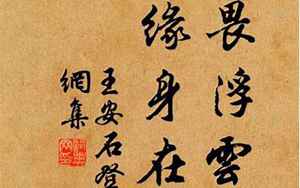 畏浮雲
緣身在
王安石登
網集